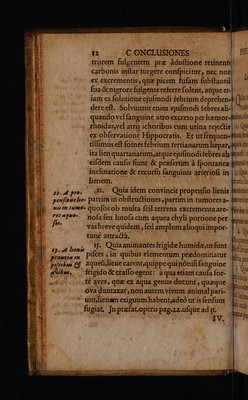 12 CONCLUSIONES
trorem fulgentem præ adustione retinent
carbonis instar turgere conspicitur, nec non
ex excrementis, quæ picem fusam substantia
sua & nigrore fulgente referre solent, atque et-
iam ex solutione ejusmodi febrium deprehen-
dere est. Solvuntur enim ejusmodi febres ali-
quando vel sanguine atro excreto per hæmor-
rhoidas, vel atro ichoribus cum urina rejectis
ex observatione Hippocratis. Et ut frequen-
tissimus est fomes febrium tertianarum hepar,
ita lien quartanarum, atque ejusmodi febres ab
eisdem causis fiunt & præsertim à spontanea
inclinatione & recursu sanguinis arteriosi in
lienem.
12. A pro-
pensione lie-
nis in tumo-
res aquo-
sos.
12. Quia idem convincit propensio lienis
partim in obstructiones, partim in tumores a-
quosos ob multa scil. terrena excrementa are-
nosa seu lutosa cum aquea chyli portione per
vas breve quidem, sed amplum alioqui impor-
tunè attracta.
13. A lienis
penuria in
piscibus &
avibus.
13. Quia animantes frigidæ humidæ, ut sunt
pisces, in quibus elementum prædominatur
aqueū, liene carent, quippe qui nōnisi sanguine
frigido & crasso egent: aqua etiam causa for-
tè aves, quæ ex aqua genus ducunt, quæque
ova duntaxat, non autem vivum animal pari-
unt, lienem exiguum habent, adeò ut is sensum
fugiat. Jn præfat. operis pag. 22. usque ad 31.
IV.